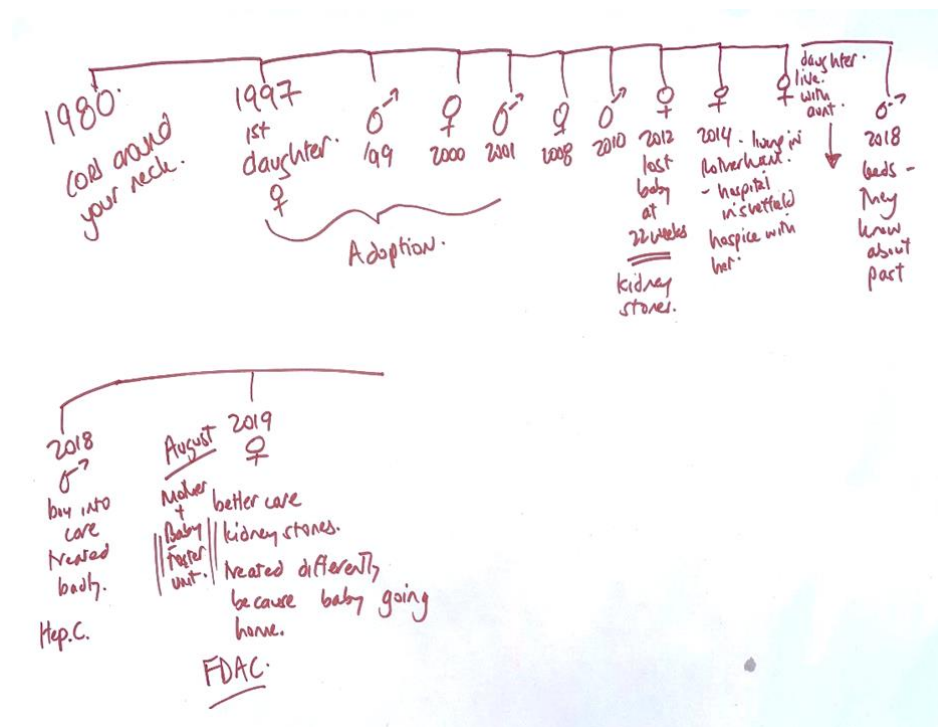 1980.
cord around
your neck.
1997
1st
daughter.
♀
♂
199
♀
2000
♂
2001
Adoption.
♀
2008
♂
2010
♀
2012
lost
baby
at
22 weeks
kidney
stones.
♀
2014. living in
Rotherham.
- hospital
in sheffield
hospice with
her.
♀
daughter.
live.
with
aunt.
♂
2018
leeds -
They
know
about
past
2018
♂
boy into
care
treated
badly.
Hep.C.
August
Mother
+
Baby
Foster
unit.
2019
♀
better care
kidney stones.
treated differently
because baby going
home.
FDAC.